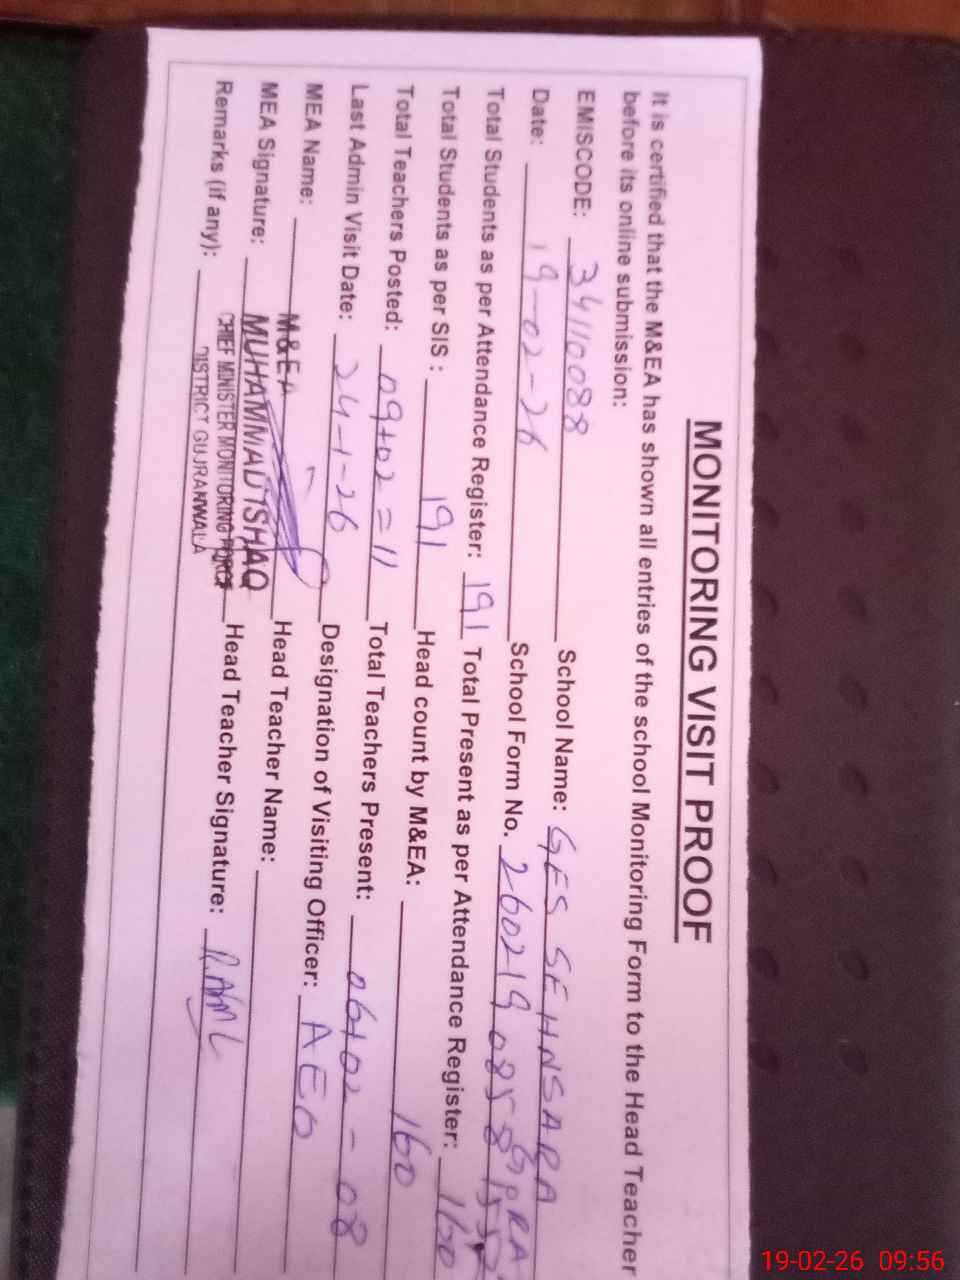 MONITORING VISIT PROOF
It is certified that the M&EA has shown all entries of the school Monitoring Form to the Head Teacher
before its online submission:
EMISCODE: 34110088 School Name: GES SEHNSARA
Date: 19-02-26 School Form No. 260219
Total Students as per Attendance Register: 191 Total Present as per Attendance Register: 160
Total Students as per SIS : 191 Head count by M&EA: 160
Total Teachers Posted: 09+02=11 Total Teachers Present: 06+02-08
Last Admin Visit Date: 24-1-26 Designation of Visiting Officer: AEO
MEA Name: M&EA Head Teacher Name:
MEA Signature: MUHAMMAD ISHAQ Head Teacher Signature:
CHIEF MINISTER MONITORING FORCE
Remarks (if any): DISTRICT GUJRANWALA
19-02-26 09:56